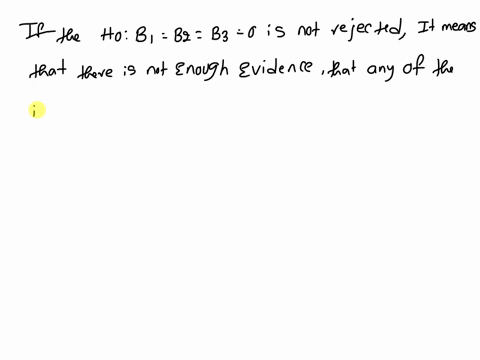 If the Ho: B1 = B2 = B3 = 0 is not rejected, It means
that there is not Enough Evidence, that any of the
i